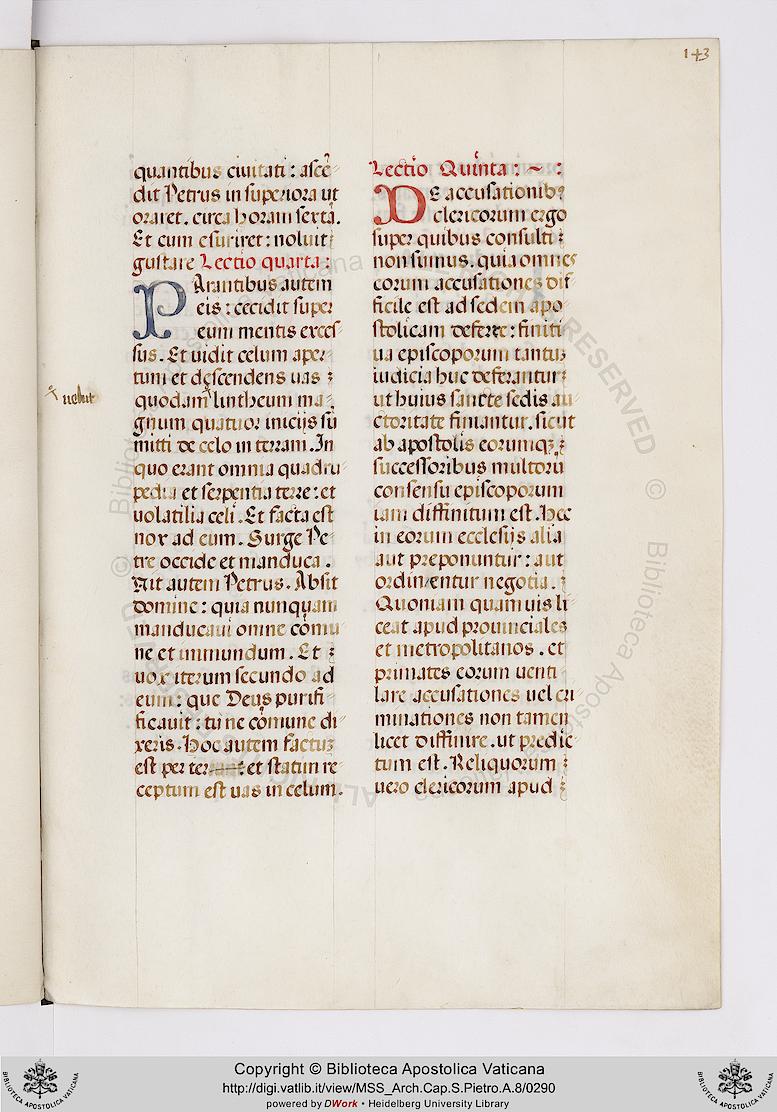 143
quantibus ciuitati : ascē
dit Petrus in superiora ut
oraret . circa horam sextā .
Et cum esuriret : noluit
gustare Lectio quarta :
PArantibus autem
eis : cecidit super
eum mentis exces
sus . Et uidit celum aper
tum et descendens uas
quodam lintheum ma
gnum quatuor inicijs sū
mitti de celo in terram . In
quo erant omnia quadru
pedia et serpentia terre : et
uolatilia celi . Et facta est
uox ad eum . Surge Pe
tre occide et manduca .
Ait autem Petrus . Absit
domine : quia nunquam
manducaui omne cōmu
ne et immundum . Et
uox iterum secundo ad
eum : que Deus purifi
ficauit : tu ne cōmune di
xeris . Hoc autem factuꝫ
est per ter : et statim re
ceptum est uas in celum .
uelut
Lectio Quinta : ~ :
DE accusationibꝰ
clericorum ergo
super quibus consulti
non sumus . quia omnes
eorum accusationes dif
ficile est ad sedem apo
stolicam deferre : finiti
ua episcoporum tantuꝫ
iudicia huc deferantur
ut huius sancte sedis au
ctoritate finiantur . sicut
ab apostolis eorumqꝫ
successoribus multorū
consensu episcoporum
iam diffinitum est . Nec
in eorum ecclesijs alia
aut preponuntur : aut
ordinentur negotia .
Quoniam quamuis li
ceat apud prouinciales
et metropolitanos . et
primates eorum uenti
lare accusationes uel cri
minationes non tamen
licet diffinire . ut predic
tum est . Reliquorum
uero clericorum apud
Copyright © Biblioteca Apostolica Vaticana
http://digi.vatlib.it/view/MSS_Arch.Cap.S.Pietro.A.8/0290
powered by DWork • Heidelberg University Library
BIBLIOTECA APOSTOLICA VATICANA
BIBLIOTECA APOSTOLICA VATICANA